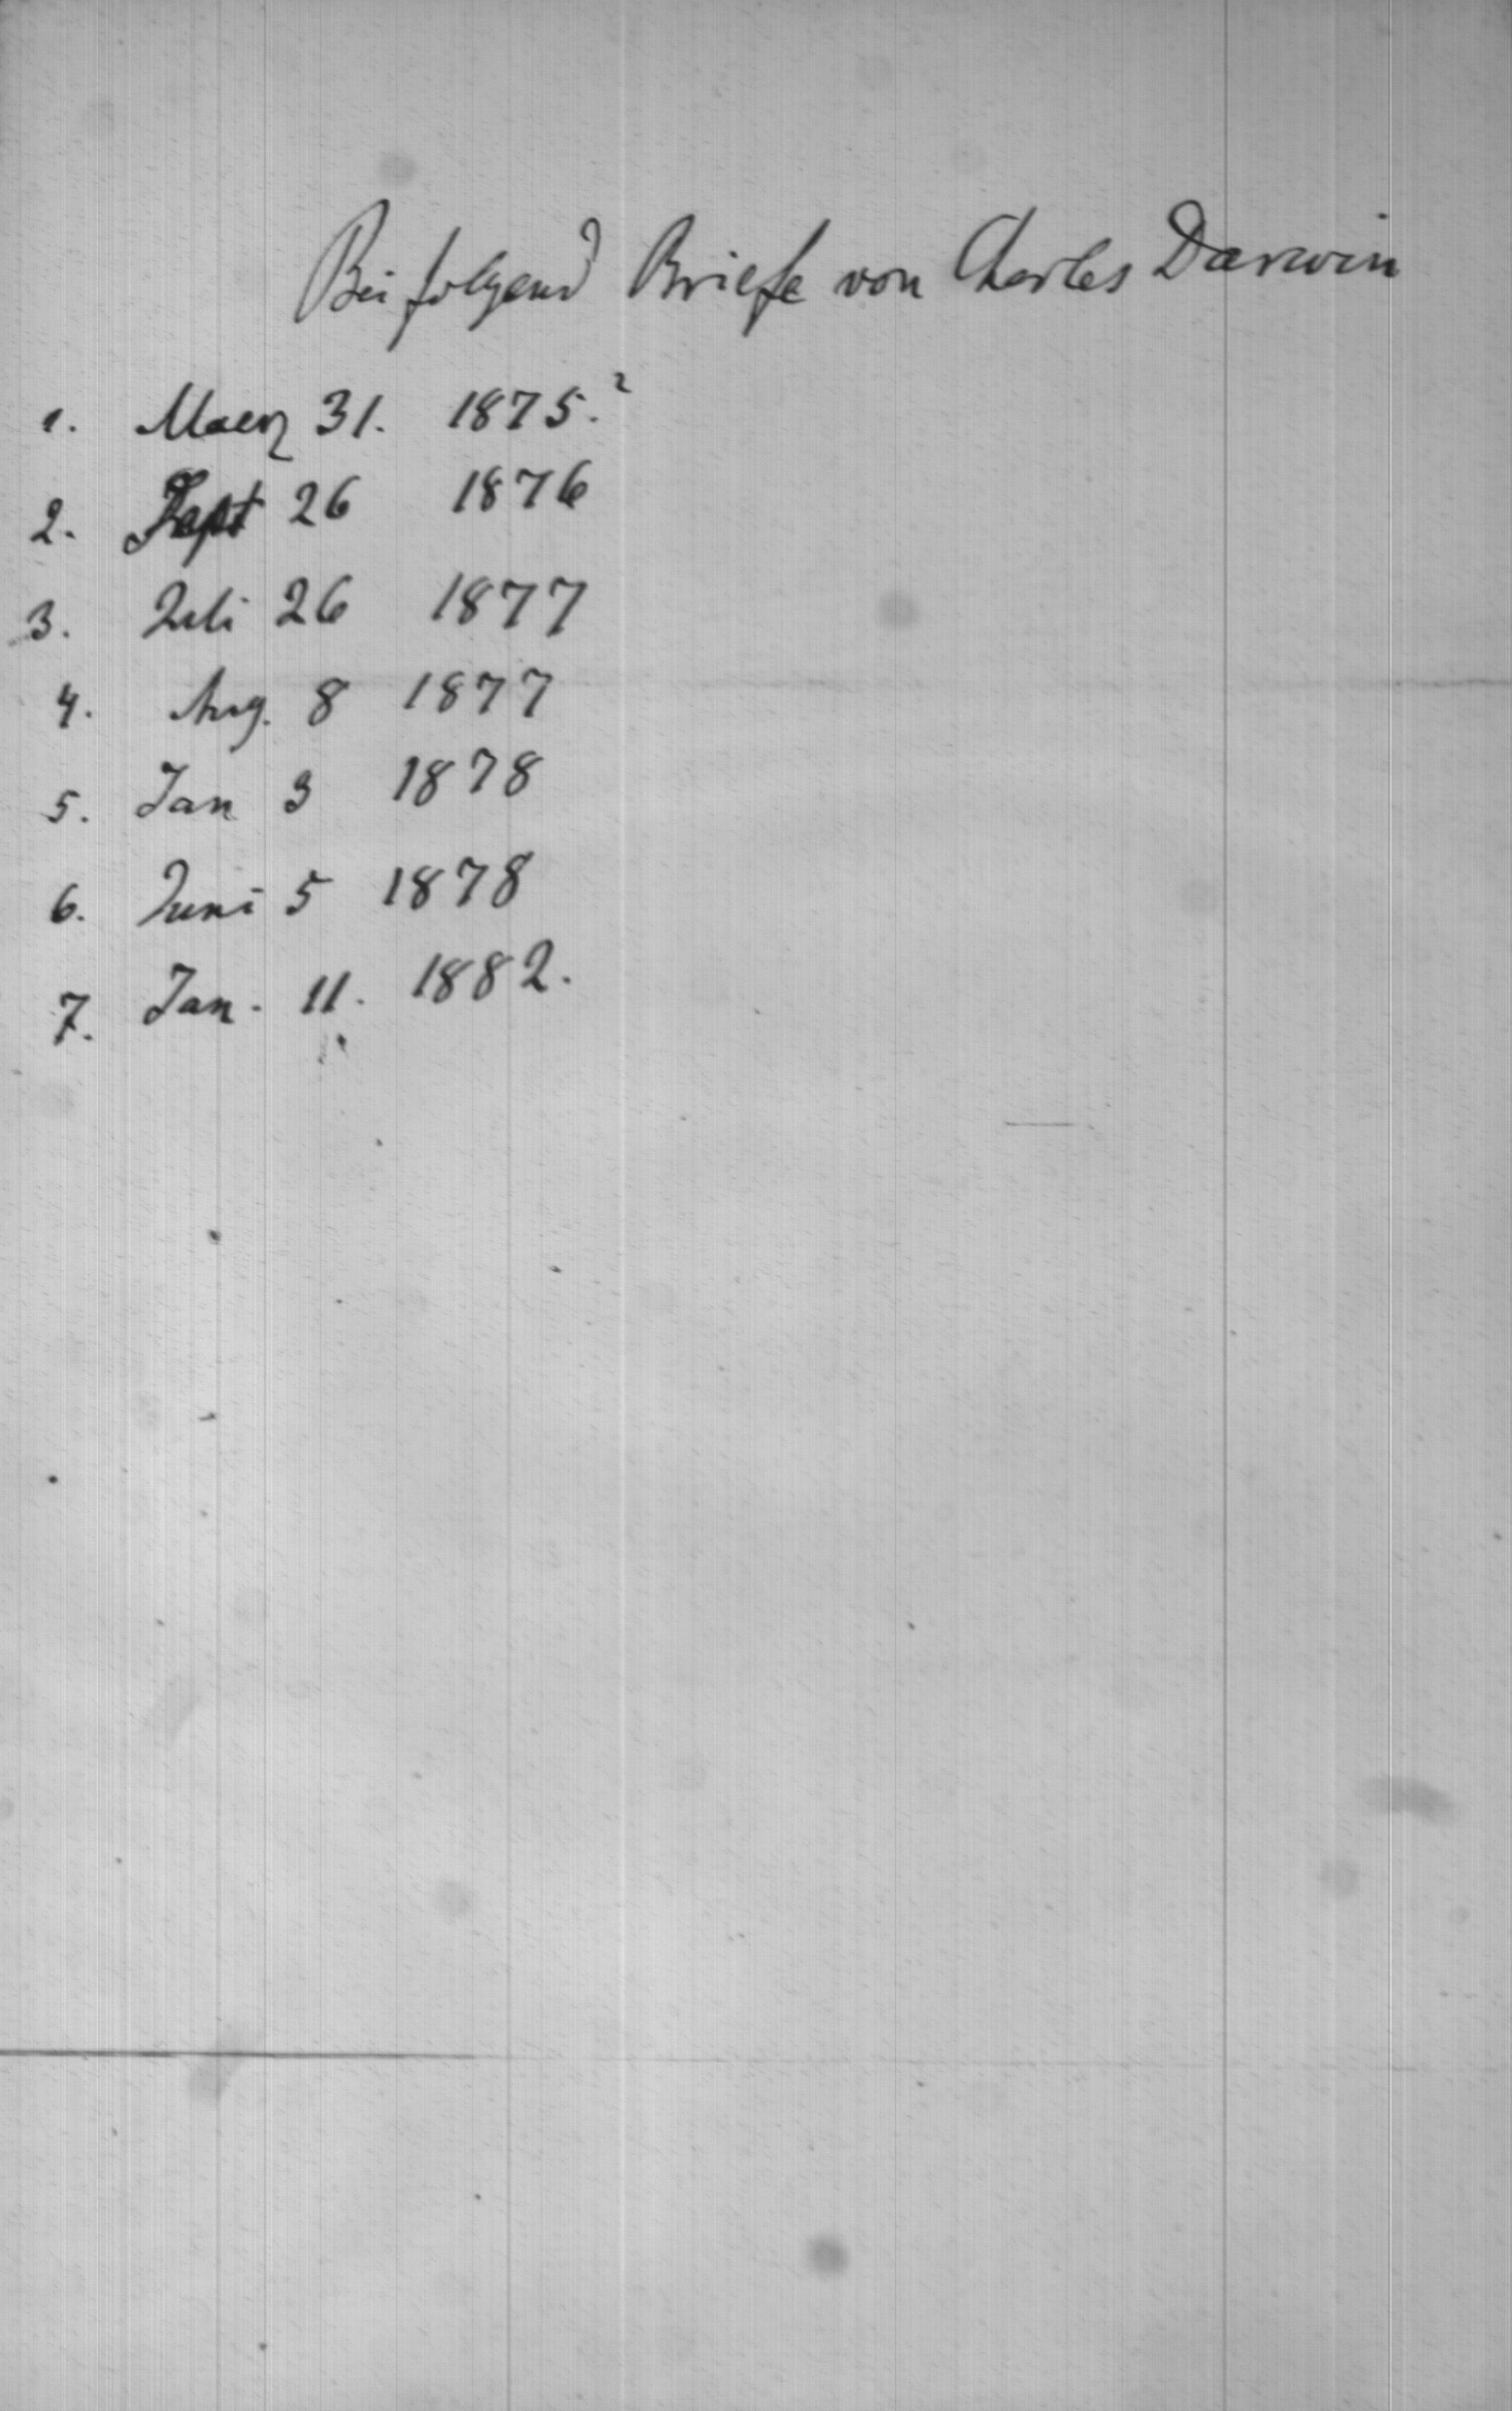 Beifolgend Briefe von Charles Darwin
1. Maerz 31. 1875.?
2. Sept 26 1876
3. Juli 26 1877
4. Aug. 8 1877
5. Jan 3 1878
6. Juni 5 1878
7. Jan. 11. 1882.